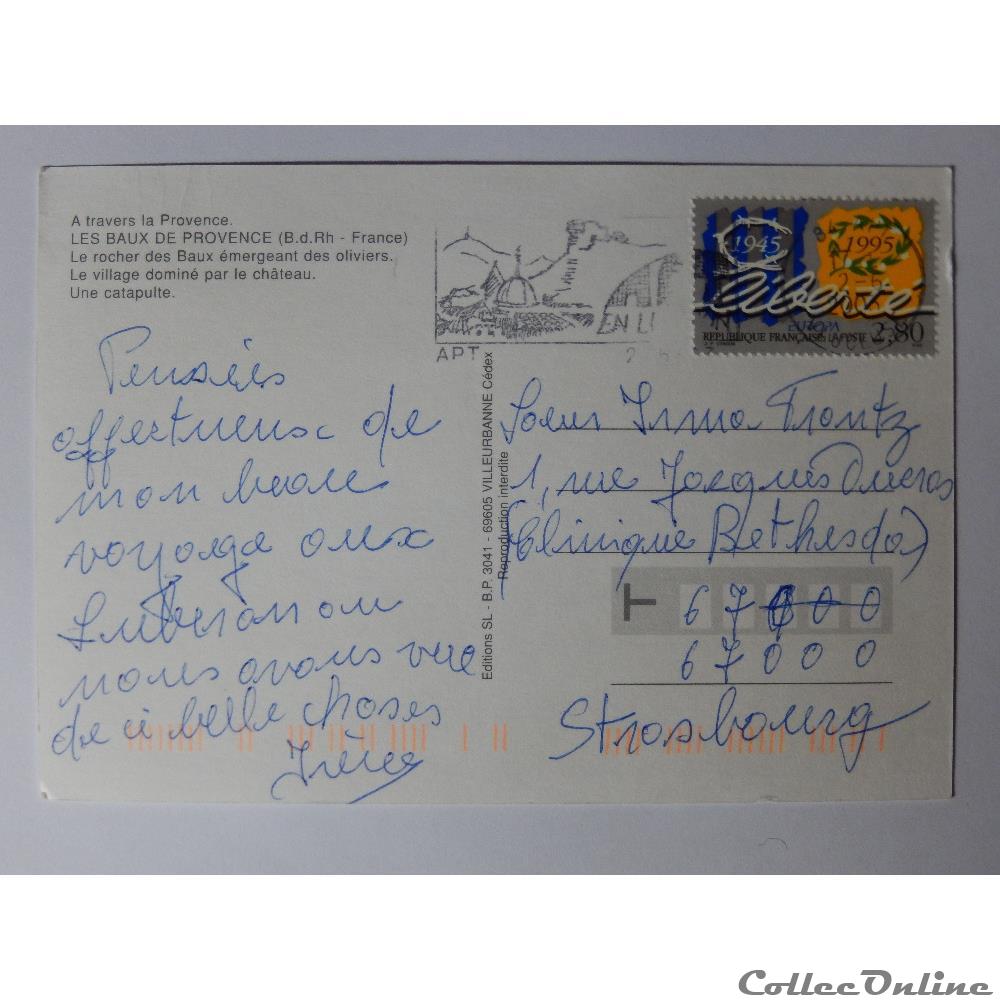 A travers la Provence.
LES BAUX DE PROVENCE (B.d.Rh - France)
Le rocher des Baux émergeant des oliviers.
Le village dominé par le château.
Une catapulte.
APT
EN LU
1945
1995
Liberté
EUROPA
REPUBLIQUE FRANÇAISE LA POSTE 2,80
Pensées
affectueux de
mon beau
voyage aux
Luberon ou
nous avons vue
de si belle choses
Irène
Editions SL - B.P. 3041 - 69605 VILLEURBANNE Cédex
Reproduction interdite
Soeur Irma Frantz
1, rue Jacques
(Clinique Bethesda)
T 67000
67000
Strasbourg
CollecOnline